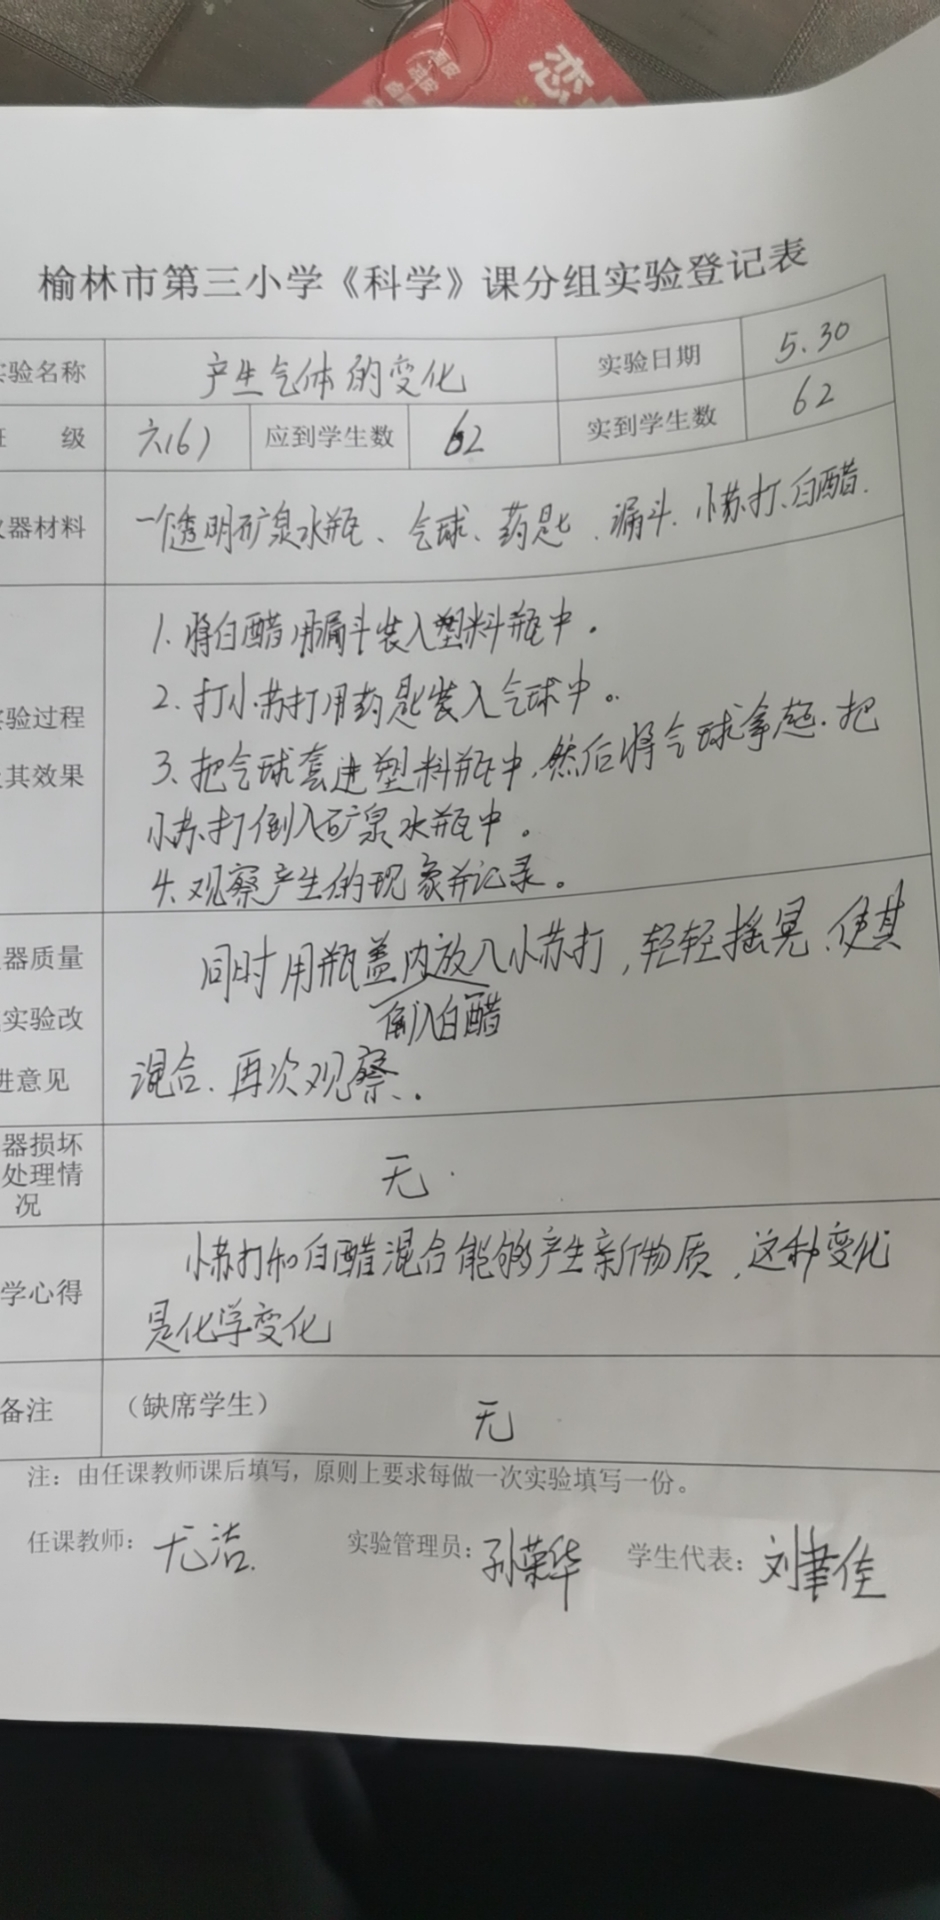 恋
榆林市第三小学《科学》课分组实验登记表
实验名称 产生气体的变化 实验日期 5.30
级 六(6) 应到学生数 62 实到学生数 62
器材料 一个透明矿泉水瓶、气球、药匙、漏斗、小苏打、白醋.
1、将白醋用漏斗装入塑料瓶中。
2、打小苏打用药匙装入气球中。
验过程
其效果
3、把气球套进塑料瓶中,然后将气球拿起、把
小苏打倒入矿泉水瓶中。
4、观察产生的现象并记录。
器质量
实验改
进意见
同时用瓶盖内放入小苏打,轻轻摇晃、使其
倒入白醋
混合、再次观察、.
器损坏
处理情
况
无.
学心得
小苏打和白醋混合能够产生新物质,这种变化
是化学变化
备注 (缺席学生) 无
注:由任课教师课后填写,原则上要求每做一次实验填写一份。
任课教师: 尤洁. 实验管理员: 孙荣华 学生代表: 刘聿佳